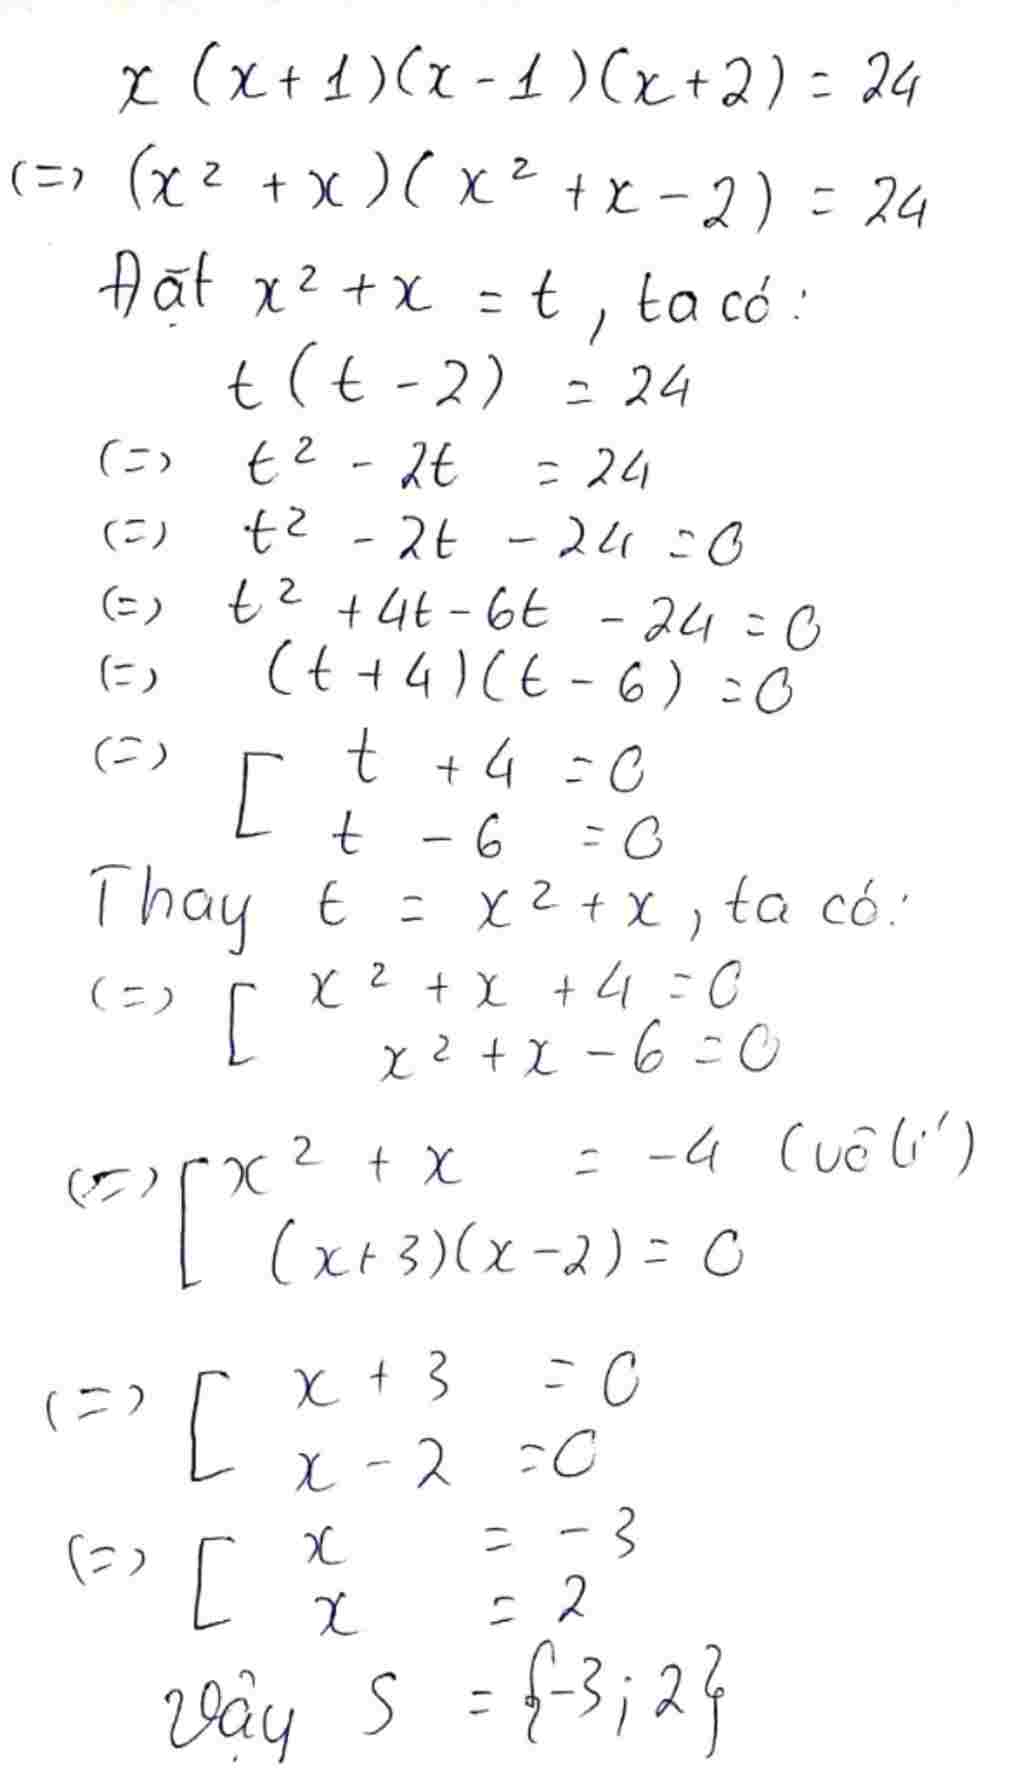 x (x+1)(x-1)(x+2) = 24
(=) (x² + x)(x² + x - 2) = 24
Đặt x² + x = t, ta có:
t (t - 2) = 24
(=) t² - 2t = 24
(=) t² - 2t - 24 = 0
(=) t² + 4t - 6t - 24 = 0
(=) (t + 4)(t - 6) = 0
(=) [ t + 4 = 0
t - 6 = 0
Thay t = x² + x, ta có:
(=) [ x² + x + 4 = 0
x² + x - 6 = 0
(=) [ x² + x = -4 (vô lí)
(x+3)(x-2) = 0
(=) [ x + 3 = 0
x - 2 = 0
(=) [ x = -3
x = 2
Vậy S = {-3; 2}